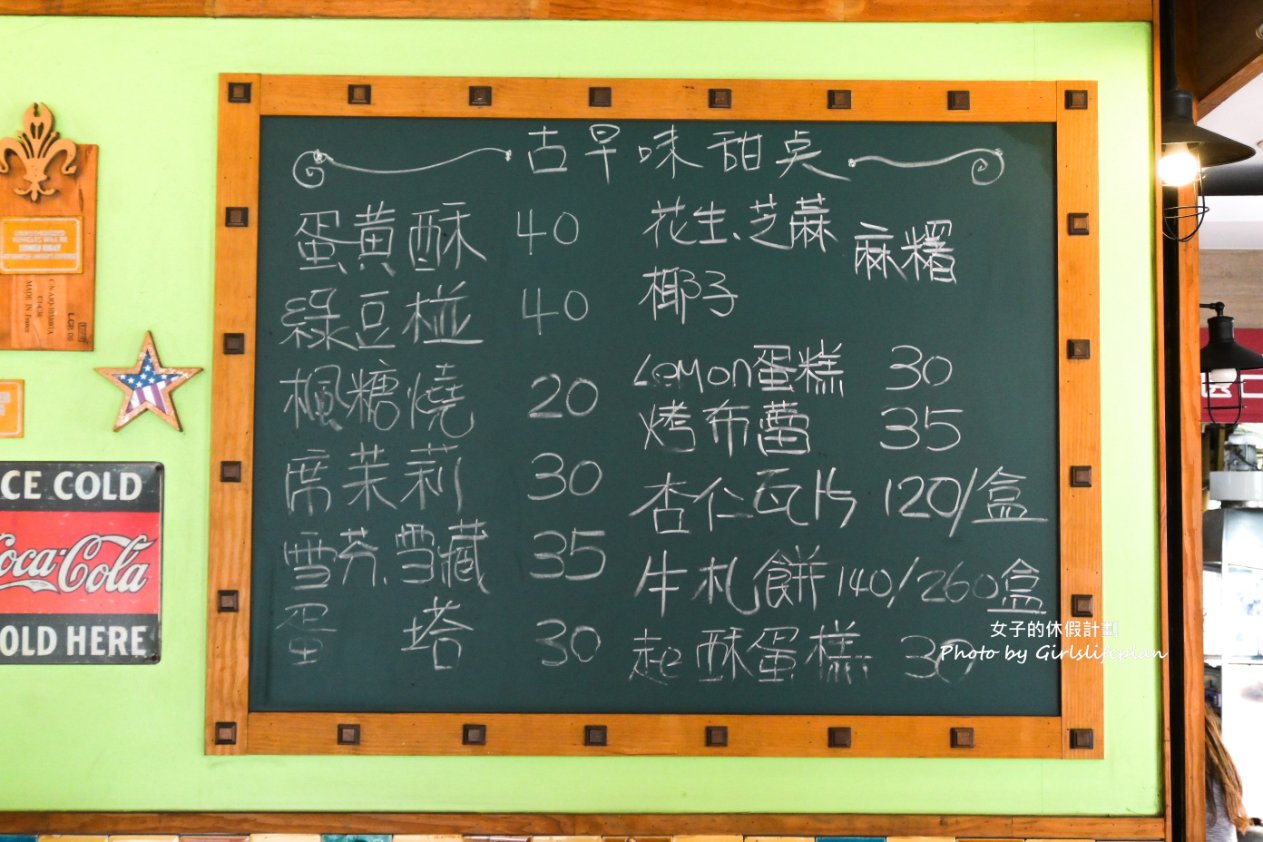 古早味甜点
蛋黃酥 40
綠豆椪 40
楓糖燒 20
席茉莉 30
雪芬、雪藏 35
蛋塔 30
花生、芝蔴 麻糬
椰子
Lemon蛋糕 30
烤布蕾 35
杏仁瓦片 120/盒
牛札餅 140/260盒
起酥蛋糕 30
女子的休假計劃
Photo by Girlslifeplan
CE COLD
Coca-Cola
OLD HERE
MADE IN France